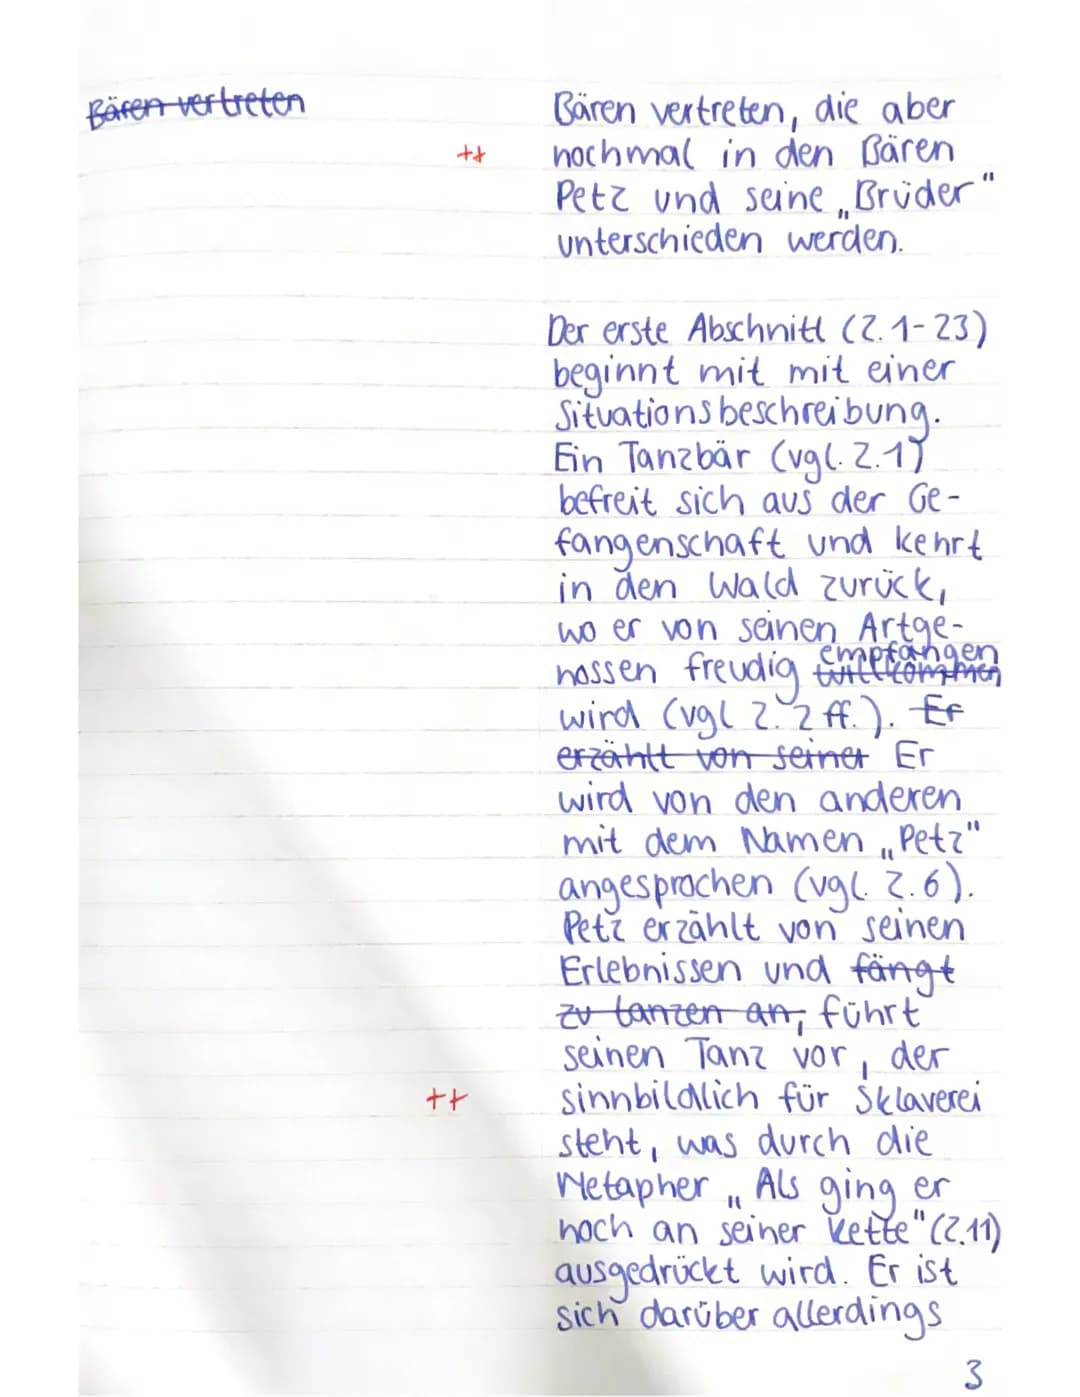 Bären vertreten
Bären vertreten, die aber
++ nochmal in den Bären
Petz und seine „Brüder"
unterschieden werden.
Der erste Abschnitt (Z. 1-23)
beginnt mit mit einer
Situationsbeschreibung.
Ein Tanzbär (vgl. Z.1)
befreit sich aus der Ge-
fangenschaft und kehrt
in den Wald zurück,
wo er von seinen Artge-
empfangen
nossen freudig willkommen
wird (vgl Z. 2 ff.). Er
erzählt von seiner Er
wird von den anderen
mit dem Namen „Petz"
angesprochen (vgl. Z.6).
Petz erzählt von seinen
Erlebnissen und fängt
zu tanzen an, führt
seinen Tanz vor, der
++ sinnbildlich für Sklaverei
steht, was durch die
Metapher „Als ging er
noch an seiner Kette" (Z.11)
ausgedrückt wird. Er ist
sich darüber allerdings
3